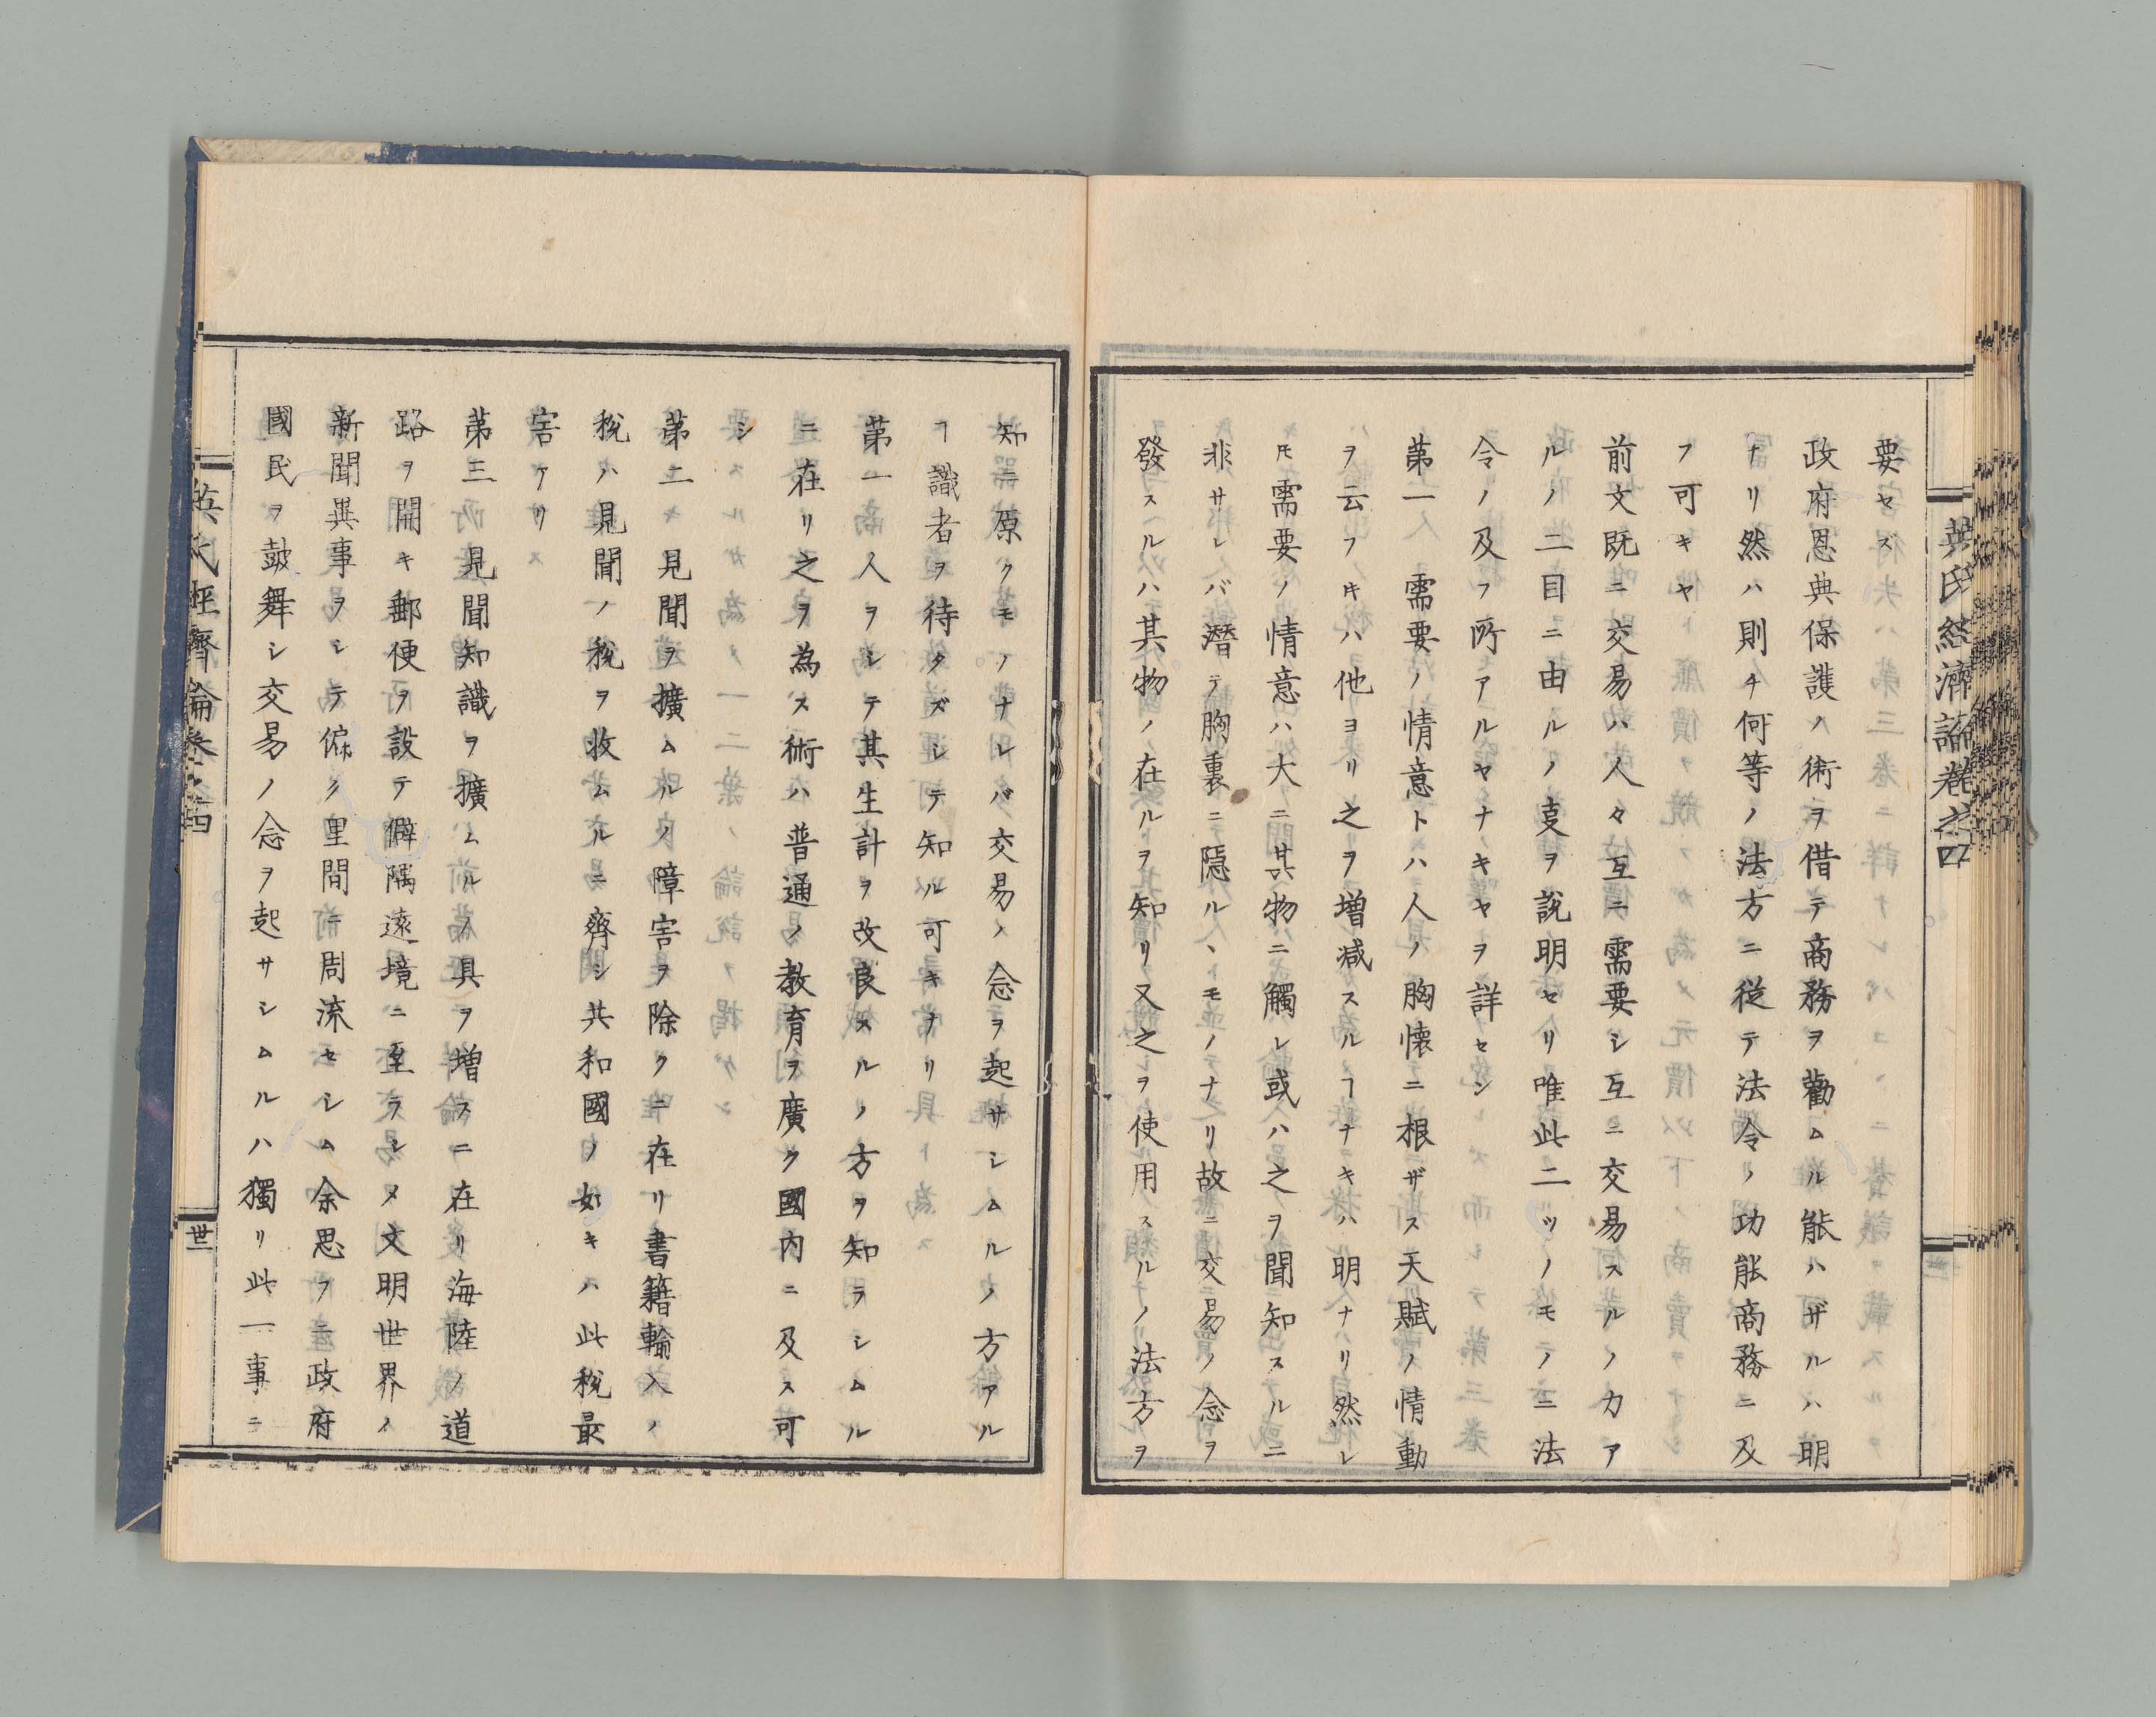 英氏経濟論巻之四
要セズ
政府恩典保護ノ術ヲ借テ商務ヲ勸ムル能ハザルハ明
ナリ然ハ則チ何等ノ法方ニ従テ法令ノ功能商務ニ及
フ可キヤ
前文既ニ交易ハ人々互ニ需要シ互ニ交易スルノ力ア
ルノ二目ニ由ルノ㕝ヲ說明セリ唯此二ツノモノニ法
令ノ及フ所アルヤナキヤヲ詳セン
苐一需要ノ情意トハ人ノ胸懐ニ根ザス天賦ノ情動
ヲ云フ𪜈ハ他ヨリ之ヲ増减スルヿナキハ明ナリ然レ
𪜈需要ノ情意ハ大ニ其物ニ觸レ或ハ之ヲ聞知スルニ
非サレバ潛テ胸裏ニ隠ルヽモノナリ故ニ交易ノ念ヲ
發スルハ其物ノ在ルヲ知リ又之ヲ使用スルノ法方ヲ
知ニ原クモノナレバ交易ノ念ヲ起サシムルノ方アル
ヿ識者ヲ待タズシテ知ル可キナリ
苐一人ヲシテ其生計ヲ改良スルノ方ヲ知ラシムル
ニ在リ之ヲ為ス術ハ普通ノ教育ヲ廣ク國内ニ及ス可
シ
苐二見聞ヲ擴ムルノ障害ヲ除クニ在リ書籍輸入ノ
税ハ見聞ノ税ヲ收ムルニ齊シ共和國ノ如キハ此税最
害アリ
苐三見聞知識ヲ擴ムルノ具ヲ増スニ在リ海陸ノ道
路ヲ開キ郵便ヲ設テ僻隅遠境ニ至ラシメ文明世界ノ
新聞異事ヲシテ偏ク里間ニ周流セシム余思フニ政府
國民ヲ鼓舞シ交易ノ念ヲ起サシムルハ獨リ此一事ニ
英氏経齊論巻之四
丗